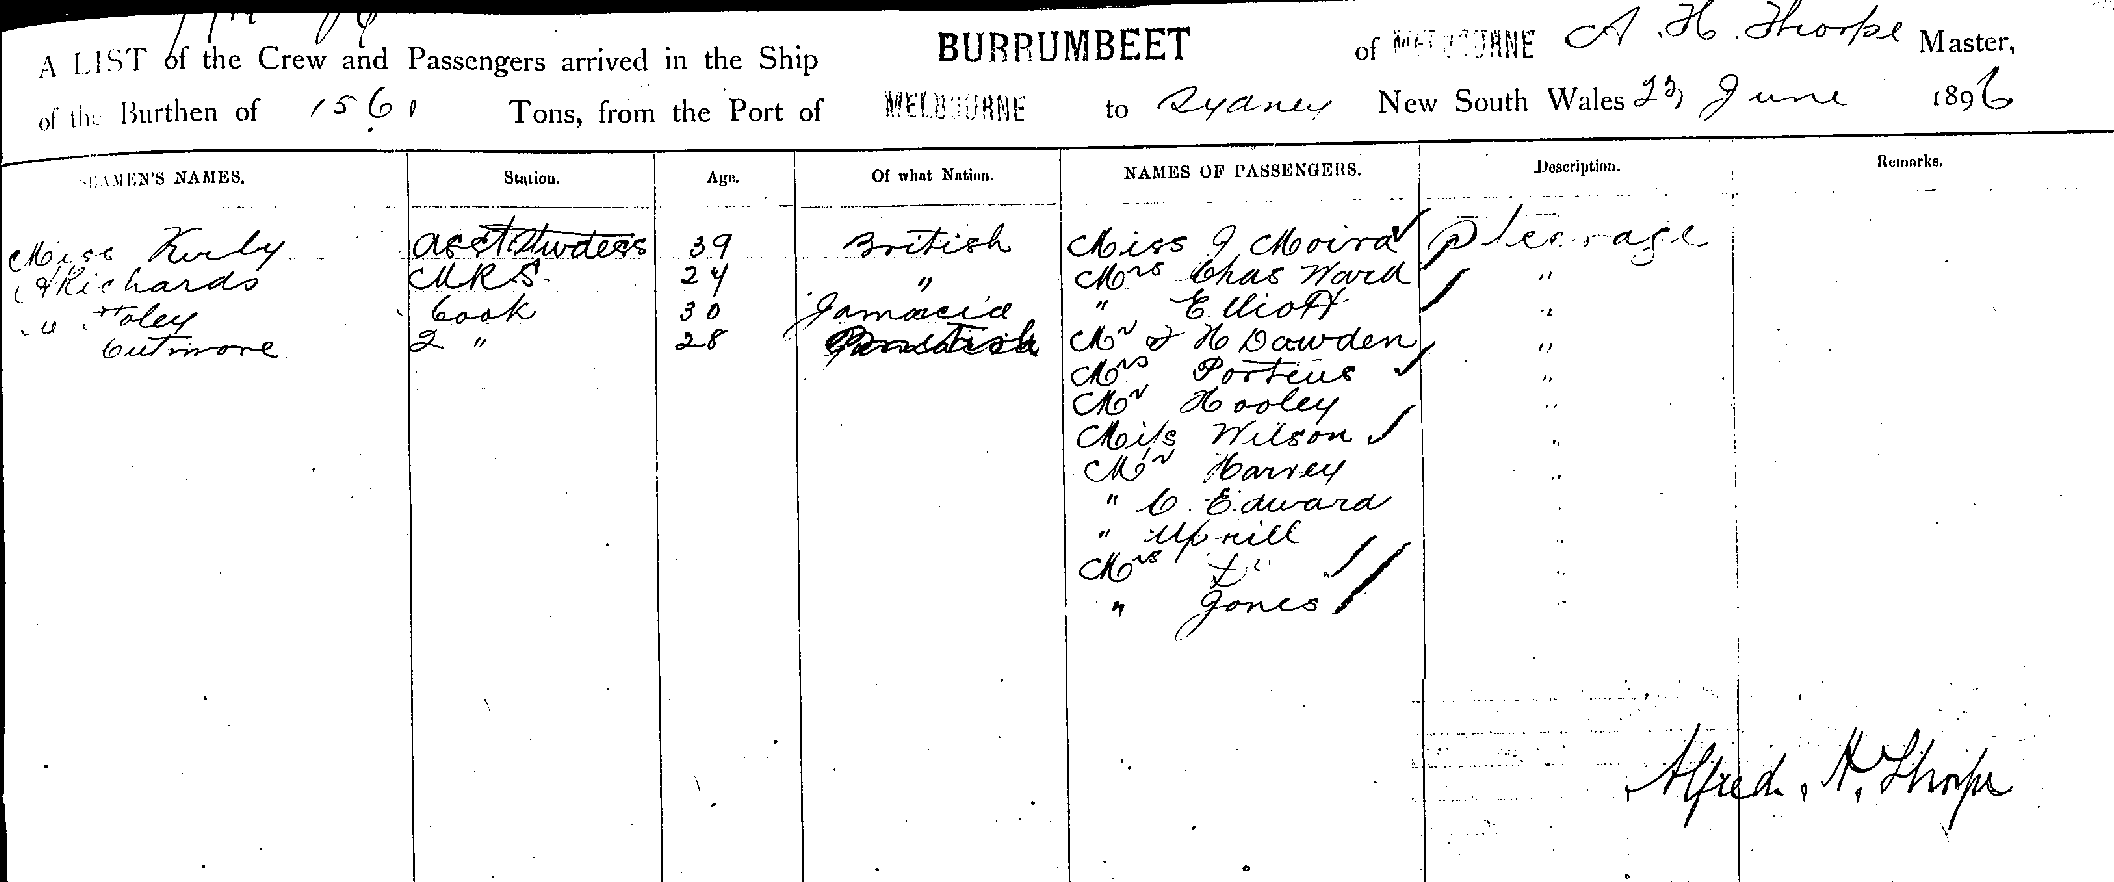 A LIST of the Crew and Passengers arrived in the Ship BURRUMBEET of MELBOURNE A. H. Thorpe Master,
of the Burthen of 1561 Tons, from the Port of MELBOURNE to Sydney New South Wales 23 June 1896
SEAMEN'S NAMES. Station. Age. Of what Nation. NAMES OF PASSENGERS. Description. Remarks.
Miss Kirby Asst Stwdess 39 British Miss J Moira Steerage
Richards M.R.S. 24 " Mrs Chas Ward "
Foley Cook 30 Jamacia " Elliott "
Cutmore 2 " 28 Mr & H Dawden "
Mrs Porteus "
Mr Hooley "
Miss Wilson "
Mr Harvey "
" C. Edward "
" Uphill "
Mrs "
" Jones "
Alfred. H. Thorpe